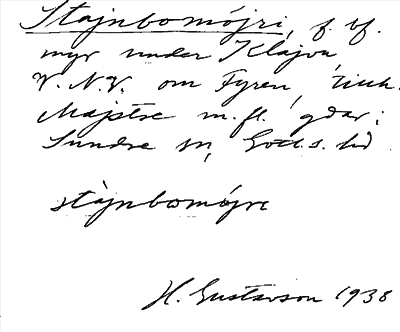 Stajnbomøjri, f. bf.
myr under Klajva,
V. N. V. om Fyren,
Majstre m. fl. gdar i
Sundre sn, Gotl. s. hd
stajnbomøjre
H. Gustavson 1938